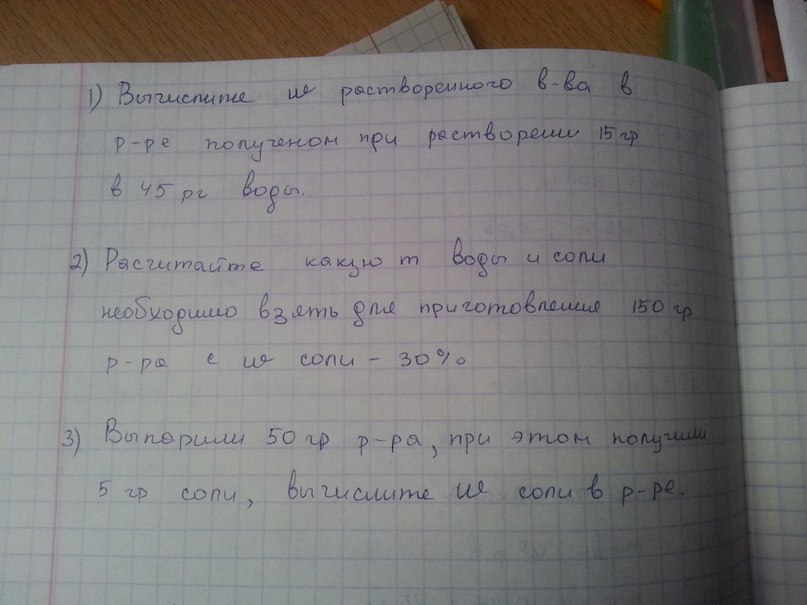 1) Вычислите ω растворенного в-ва в
р-ре полученом при растворении 15 гр
в 45 рг воды.
2) Расчитайте какую m воды и соли
необходимо взять для приготовления 150 гр
р-ра с ω соли - 30%
3) Выпарили 50 гр р-ра, при этом получили
5 гр соли, вычислите ω соли в р-ре.